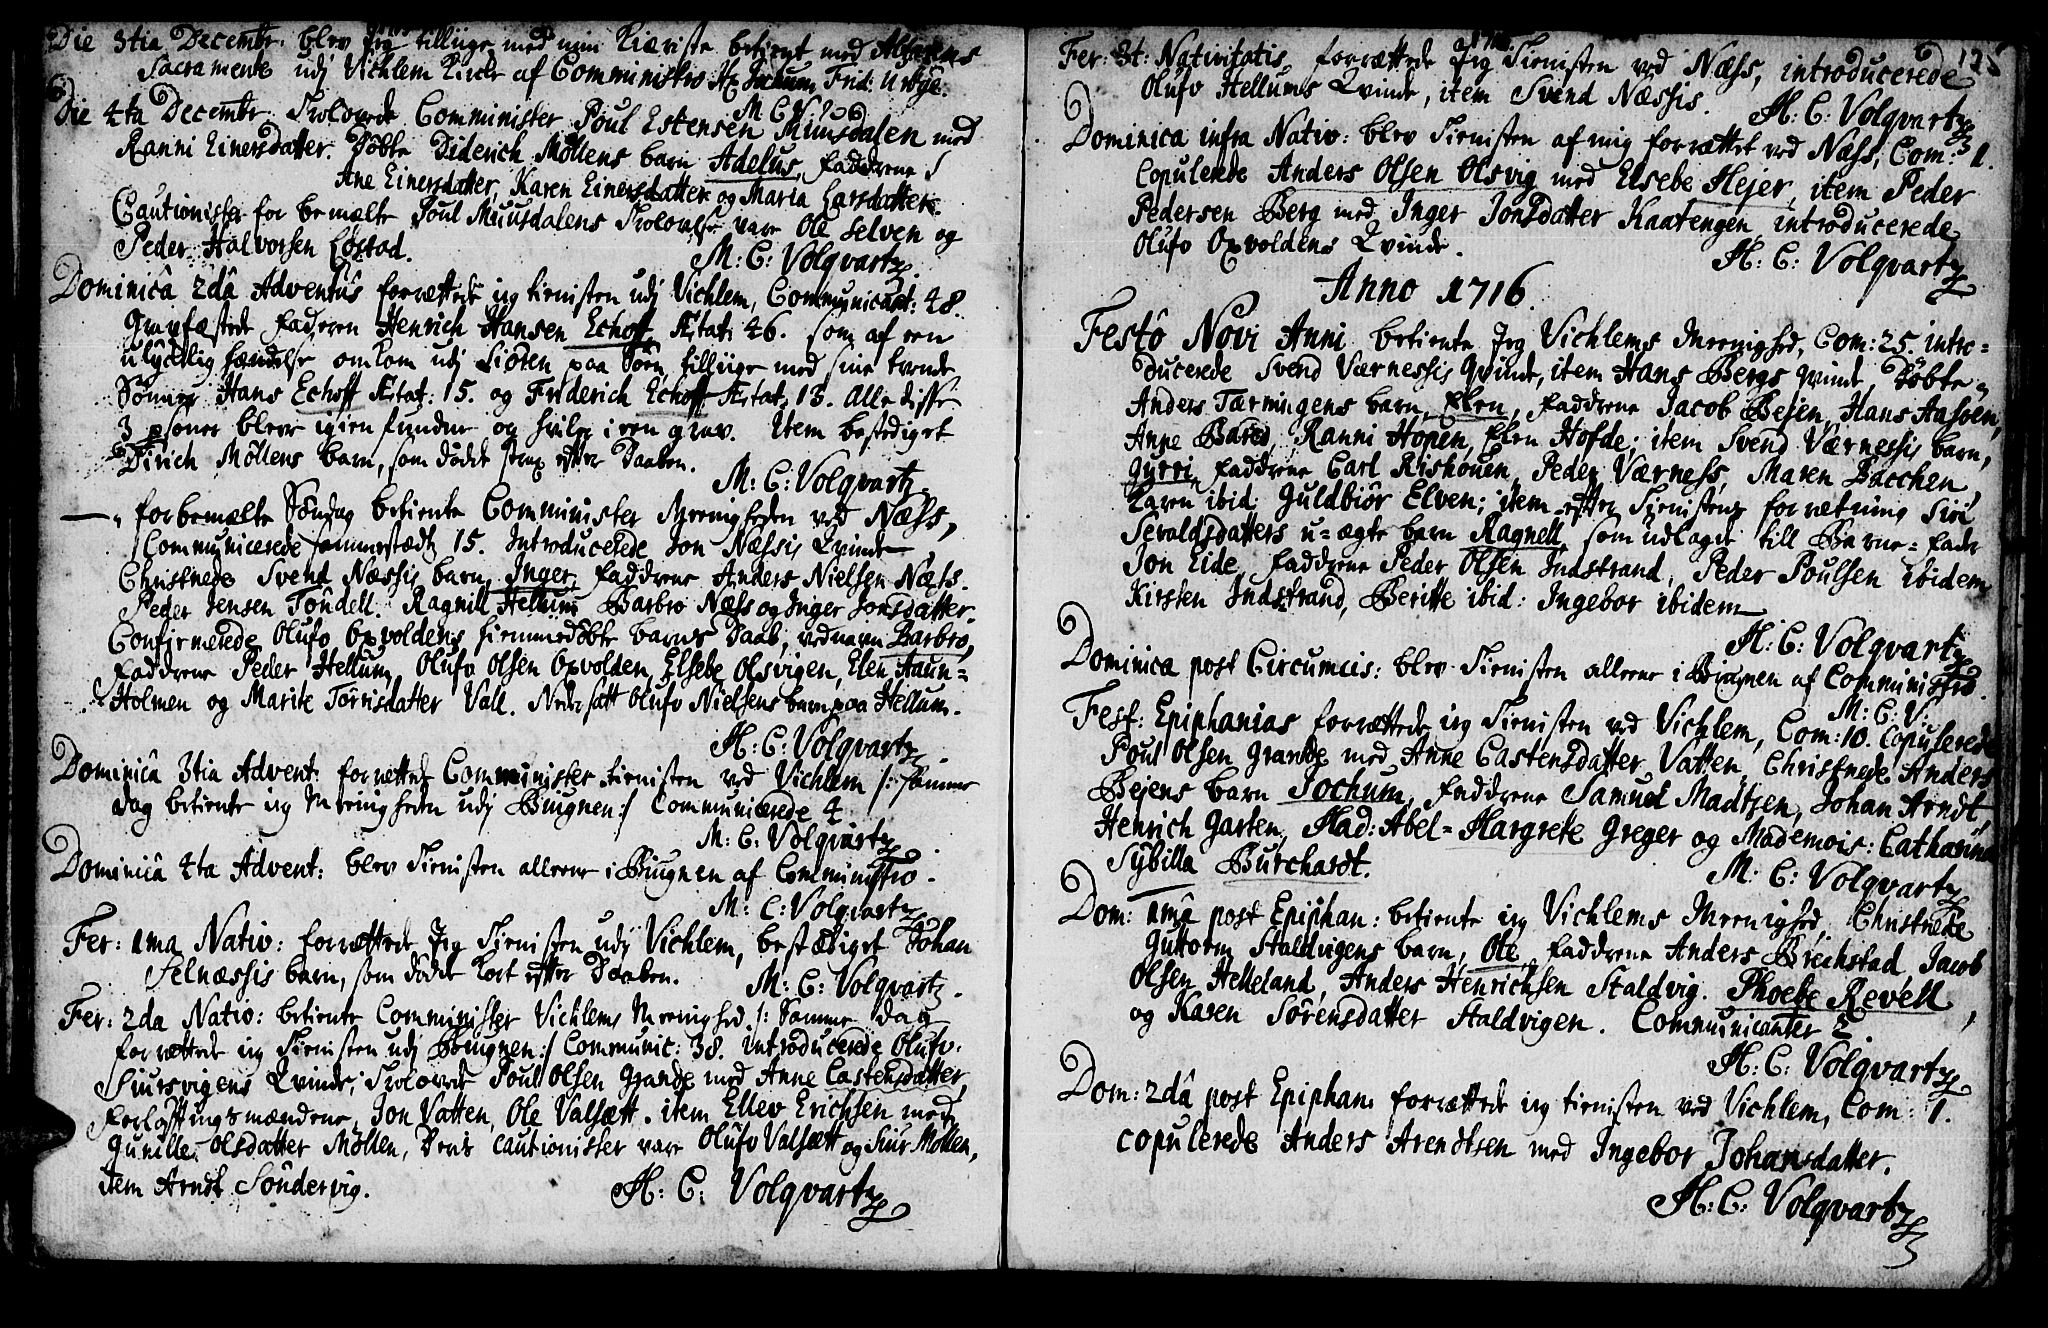 Die 3tia Decembr. blev Jeg tilliige med min Kiæriste betient med Alterens
Sacramente udj Vichlem Kirche af Communistro Hr Jochum Frid: Urbye.
M C V
Die 4ta Decembr. Trolovede Comminister Poul Estensen Muusdalen med
Ranni Einersdatter. Döbte Diderich Möllens barn Adelus, faddrene
Ane Einersdatter, Karen Einersdatter og Maria Larsdatter.
Cautionister for bemælte Poul Muusdalens Trolovelse vare Ole Selven og
Peder Halvorsen Løstad.
M: C: Volqvartz.
Dominicâ 2dâ Adventûs forrættede ieg tienisten udj Vichlem, Communicant: 48.
Gravfæstede Faderen Henrich Hansen Echoff, Ætat: 46. som af een
ulyckelig hændelse omkom udj Siöten paa Söen tilliige med sine tvende
Sönner Hans Echoff Ætat: 15. og Friderich Echoff Ætat: 13. Alle disse
3 psoner bleve igien fundne og hviler i een grav. Item bestediget
Dirich Möllens barn, som döde strax efter Daaben.
M: C: Volqvartz.
— forbemælte Söndag betiente Comminister Meenigheden ved Næss,
Communicerede sammestædtz 15. Introducerede Jon Næssis Qvinde
Christnede Svend Næssis barn, Inger, faddrene Anders Nielsen Næss.
Peder Jensen Töndell. Ragnill Hellum Barbro Næss og Inger Jonsdatter.
Confirmerede Olufv Oxvoldens hiemmedöbte barns Daab, ved navn Barbro,
faddrene Peder Hellum, Olufv Olsen Oxvolden, Elsebe Olsvigen, Elen Aaun=
Holmen og Marite Törrisdatter Vall. Nedersatt Olufv Nielsens barn paa Hellum.
H: C: Volqvartz.
Dominicâ 3tia Advent: forrettet Comminister tienisten ved Vichlem /: samme
dag betiente ieg Meenigheden udj Biugnen :/ Communicerede 4
M: C: Volqvartz.
Dominicâ 4ta Advent: blev Tienisten alleene i Biugnen af Communistro.
M: C: Volqvartz.
Fer: 1ma Nativ: forrættede Jeg Tienisten udj Vichlem, bestædiget Johan
Selnæssis barn, som döde kort efter Daaben.
M: C: Volqvartz.
Fer: 2da Nativ: betiente Comminister Vichlems Meenighed /: Samme dag
forrættede ieg Tienisten udj Biugnen :/ Communic: 38. Introducerede Olufv
Hiursvigens Qvinde, Trolovede Poul Olsen Grande med Anne Castensdatter,
Forlöftingsmændene, Jon Vatten, Ole Valsætt. item Ellev Erichsen med
Gunille Olsdatter Möllen, Deris cautionister vare Olufv Valsætt og Siur Möllen,
item Arndt Söndervig.
H: C: Volqvartz
175
Fer: 3t: Nativitatis, forrættede Jeg Tienisten ved Næss, introducerede
Olufv Hellums Qvinde, item Svend Næssis.
H: C: Volqvartz
Dominica infra Nativ: blev Tienisten af mig forrættet ved Næss, Com: 1.
Copulerede Anders Olsen Olsvig med Elsebe Hejer, item Peder
Pedersen Berg med Inger Jonsdatter Kaatengen, introducerede
Olufv Oxvoldens Qvinde.
H: C: Volqvartz
Anno 1716.
Festô Novi Anni betiente Jeg Vichlems Meenighed, Com: 25. intro=
ducerede Svend Værnessis Qvinde, item Hans Bergs qvinde, Döbte
Anders Tærningens barn, Elen, faddrene Jacob Bejen, Hans Aasven,
Anne Bared, Ranni Hopen, Elen Hofde; item Svend Værnessis barn,
Gyrri, faddrene Carl Rishouen, Peder Værness, Maren Bacchen
Karen ibid. Guldbiör Elven; item efter Tienistens forretning Siri
Sevaldsdatters u=ægte barn Ragnell, som udlaget till Barne=fader
Jon Eide, faddrene Peder Olsen Indstrand, Peder Poulsen ibidem
Kirsten Indstrand, Beritte ibid: Ingebor ibidem
H: C: Volqvartz
Dominica post Circumcis: blev Tienisten alleene i Biugnen af Communistro.
M: C: V:
Fest: Epiphanias forrættede ieg Tienisten ved Vichlem, Com: 10. Copulerede
Poul Olsen Grande med Anne Castensdatter Vatten, Christnede Anders
Bejens barn Jochum, faddrene Samuel Madtzen, Johan Arndt,
Henrich Garten, Mad: Abel=Margrete Greger og Mademois: Catharina
Sybilla Burchardt.
M: C: Volqvartz
Dom: 1mâ post Epiphan: betiente ieg Vichlems Meenighed, Christnede
Guttorm Staldvigens barn, Ole, faddrene Anders Breichstad, Jacob
Olsen Helleland, Anders Henrichsen Staldvig. Phoebe Revell,
og Karen Sörensdatter Staldvigen. Communicanter 2
H: C: Volqvartz
Dom: 2dâ post Epiphan: forrættede ieg tienisten ved Vichlem, Com: 1.
copulerede Anders Arendtsen med Ingebor Johansdatter.
H: C: Volqvartz